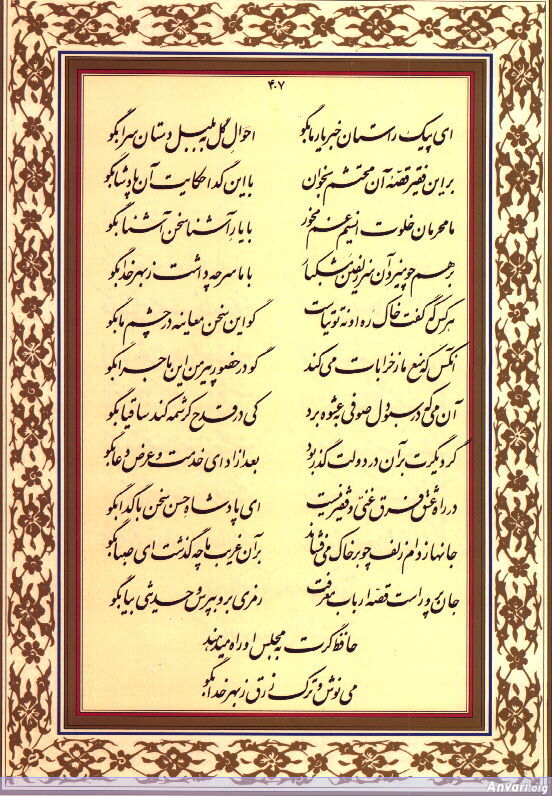 ۴۰۷
ای پیک راستان خبر یار ما بگو احوال گل به بلبل دستان سرا بگو
بر این فقیر قصهٔ آن محتشم بخوان با این گدا حکایت آن پادشا بگو
ما محرمان خلوت انسیم غم مخور با یار آشنا سخن آشنا بگو
بر هم چو میزد آن سر زلفین مشکبار با ما سر چه داشت ز بهر خدا بگو
هر کس که گفت خاک ره او نه توتیاست گو این سخن معاینه در چشم ما بگو
آنکس که منع ما ز خرابات می کند گو در حضور پیر من این ماجرا بگو
آن می که در سبو دل صوفی به عشوه برد کی در قدح کرشمه کند ساقیا بگو
گر دیگرت بر آن در دولت گذر بود بعد از ادای خدمت و عرض دعا بگو
در راه عشق فرق غنی و فقیر نیست ای پادشاه حسن سخن با گدا بگو
جانها ز دام زلف چو بر خاک می فشاند بر آن غریب ما چه گذشت ای صبا بگو
جان پرور است قصه ارباب معرفت رمزی برو بپرس و حدیثی بیا بگو
حافظ گرت به مجلس او راه میدهند
می نوش و ترک زرق ز بهر خدا بگو
Anvari.org